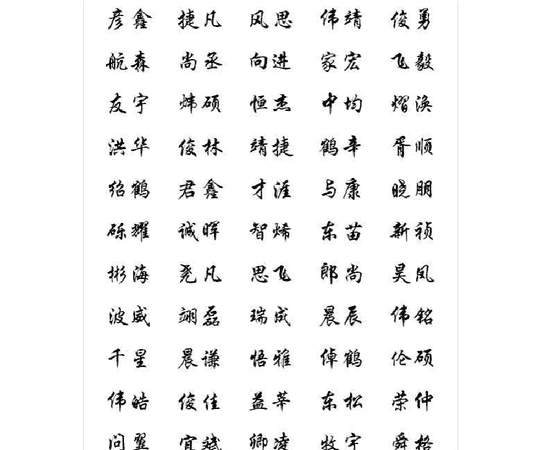 彦鑫 捷凡 风思 伟靖 俊勇
航森 尚丞 向进 家宏 飞毅
友宇 炜硕 恒杰 中均 熠涣
洪华 俊林 靖捷 鹤辛 胥顺
绍鹤 君鑫 才涯 与康 晓朋
砾耀 诚晖 智烯 东苗 新祯
彬海 尧凡 思飞 郎尚 昊凤
波威 翊磊 瑞成 晨辰 伟铭
千星 晨谦 悟雅 倬鹤 伦硕
伟皓 俊佳 益莘 东松 荣仲
问翌 宜斌 卿凌 牧宇 舜格